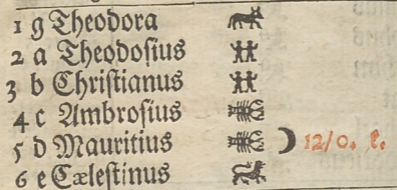 1 g Theodora
2 a Theodosius
3 b Christianus
4 c Ambrosius
5 d Mauritius 12/0. f.
6 e Cælestinus